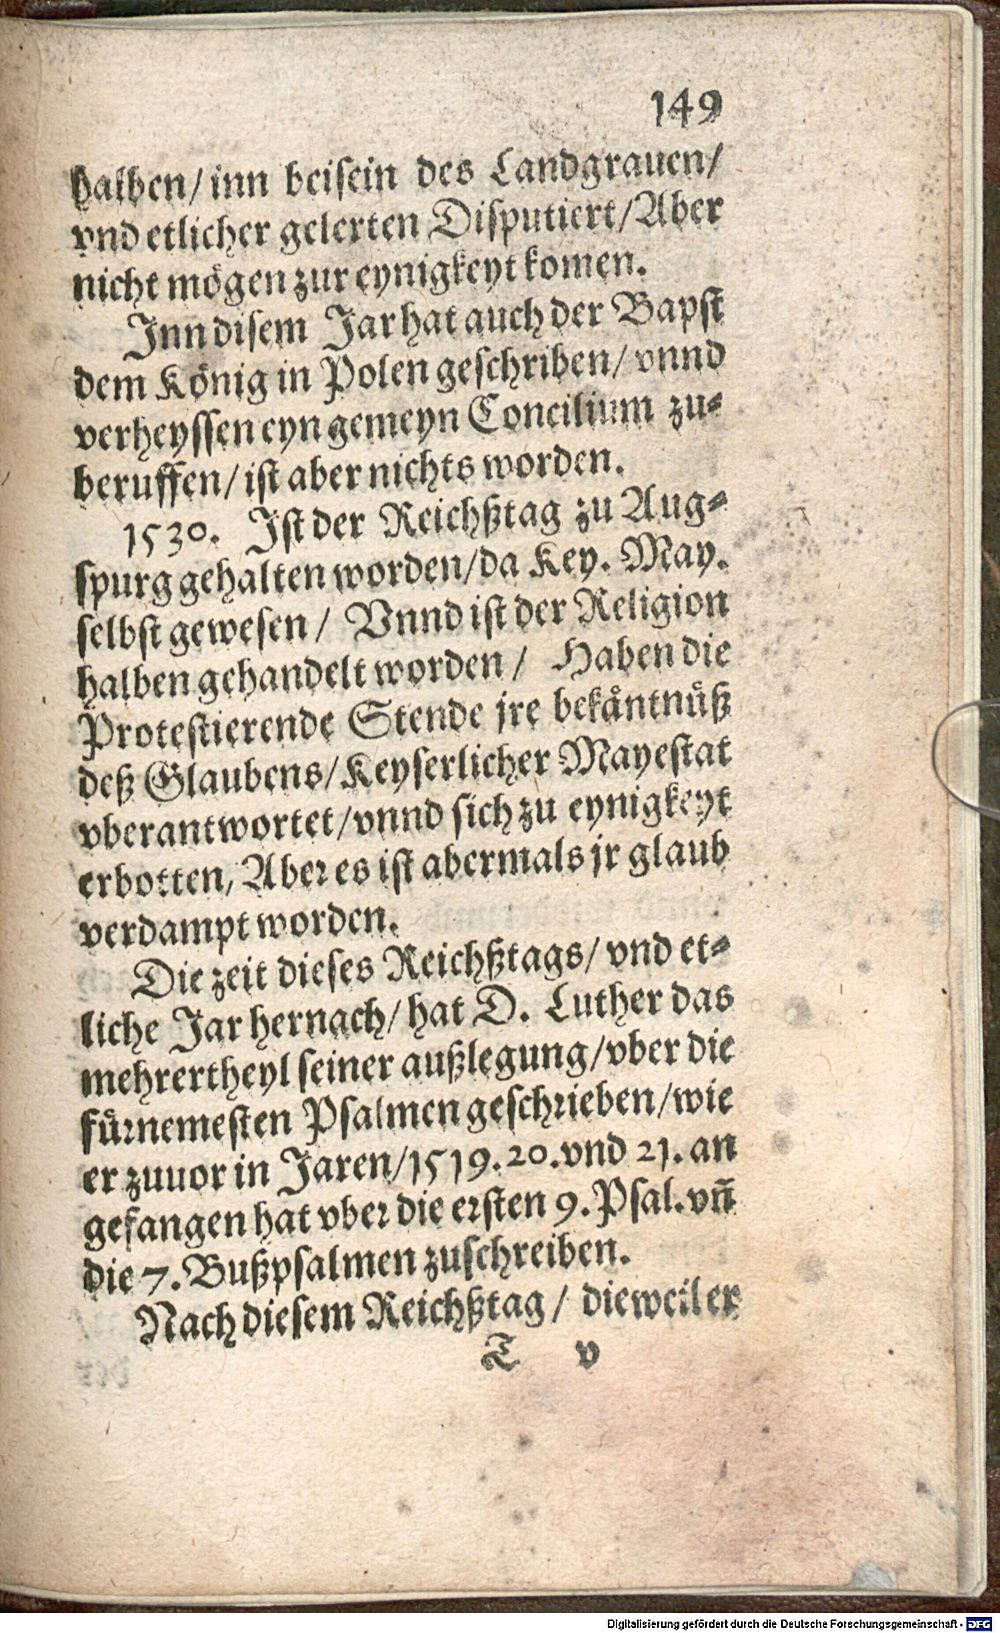 149
halben/ inn beisein des Landgrauen/
vnd etlicher gelerten Disputiert/ Aber
nicht mögen zur eynigkeyt komen.
Inn disem Jar hat auch der Bapst
dem König in Polen geschriben/ vnnd
verheyssen eyn gemeyn Concilium zu⸗
beruffen/ ist aber nichts worden.
1530. Ist der Reichßtag zu Aug⸗
spurg gehalten worden/ da Key. May.
selbst gewesen/ Vnnd ist der Religion
halben gehandelt worden/ Haben die
Protestierende Stende jre bekåntnüß
deß Glaubens/ Keyserlicher Mayestat
vberantwortet/ vnnd sich zu eynigkeyt
erbotten, Aber es ist abermals jr glaub
verdampt worden.
Die zeit dieses Reichßtags/ vnd et⸗
liche Jar hernach/ hat D. Luther das
mehrertheyl seiner außlegung/ vber die
fürnemesten Psalmen geschrieben/ wie
er zuuor in Jaren/ 1519. 20. vnd 21. an
gefangen hat vber die ersten 9. Psal. vñ
die 7. Bußpsalmen zuschreiben.
Nach diesem Reichßtag/ dieweil er
T v
Digitalisierung gefördert durch die Deutsche Forschungsgemeinschaft - DFG